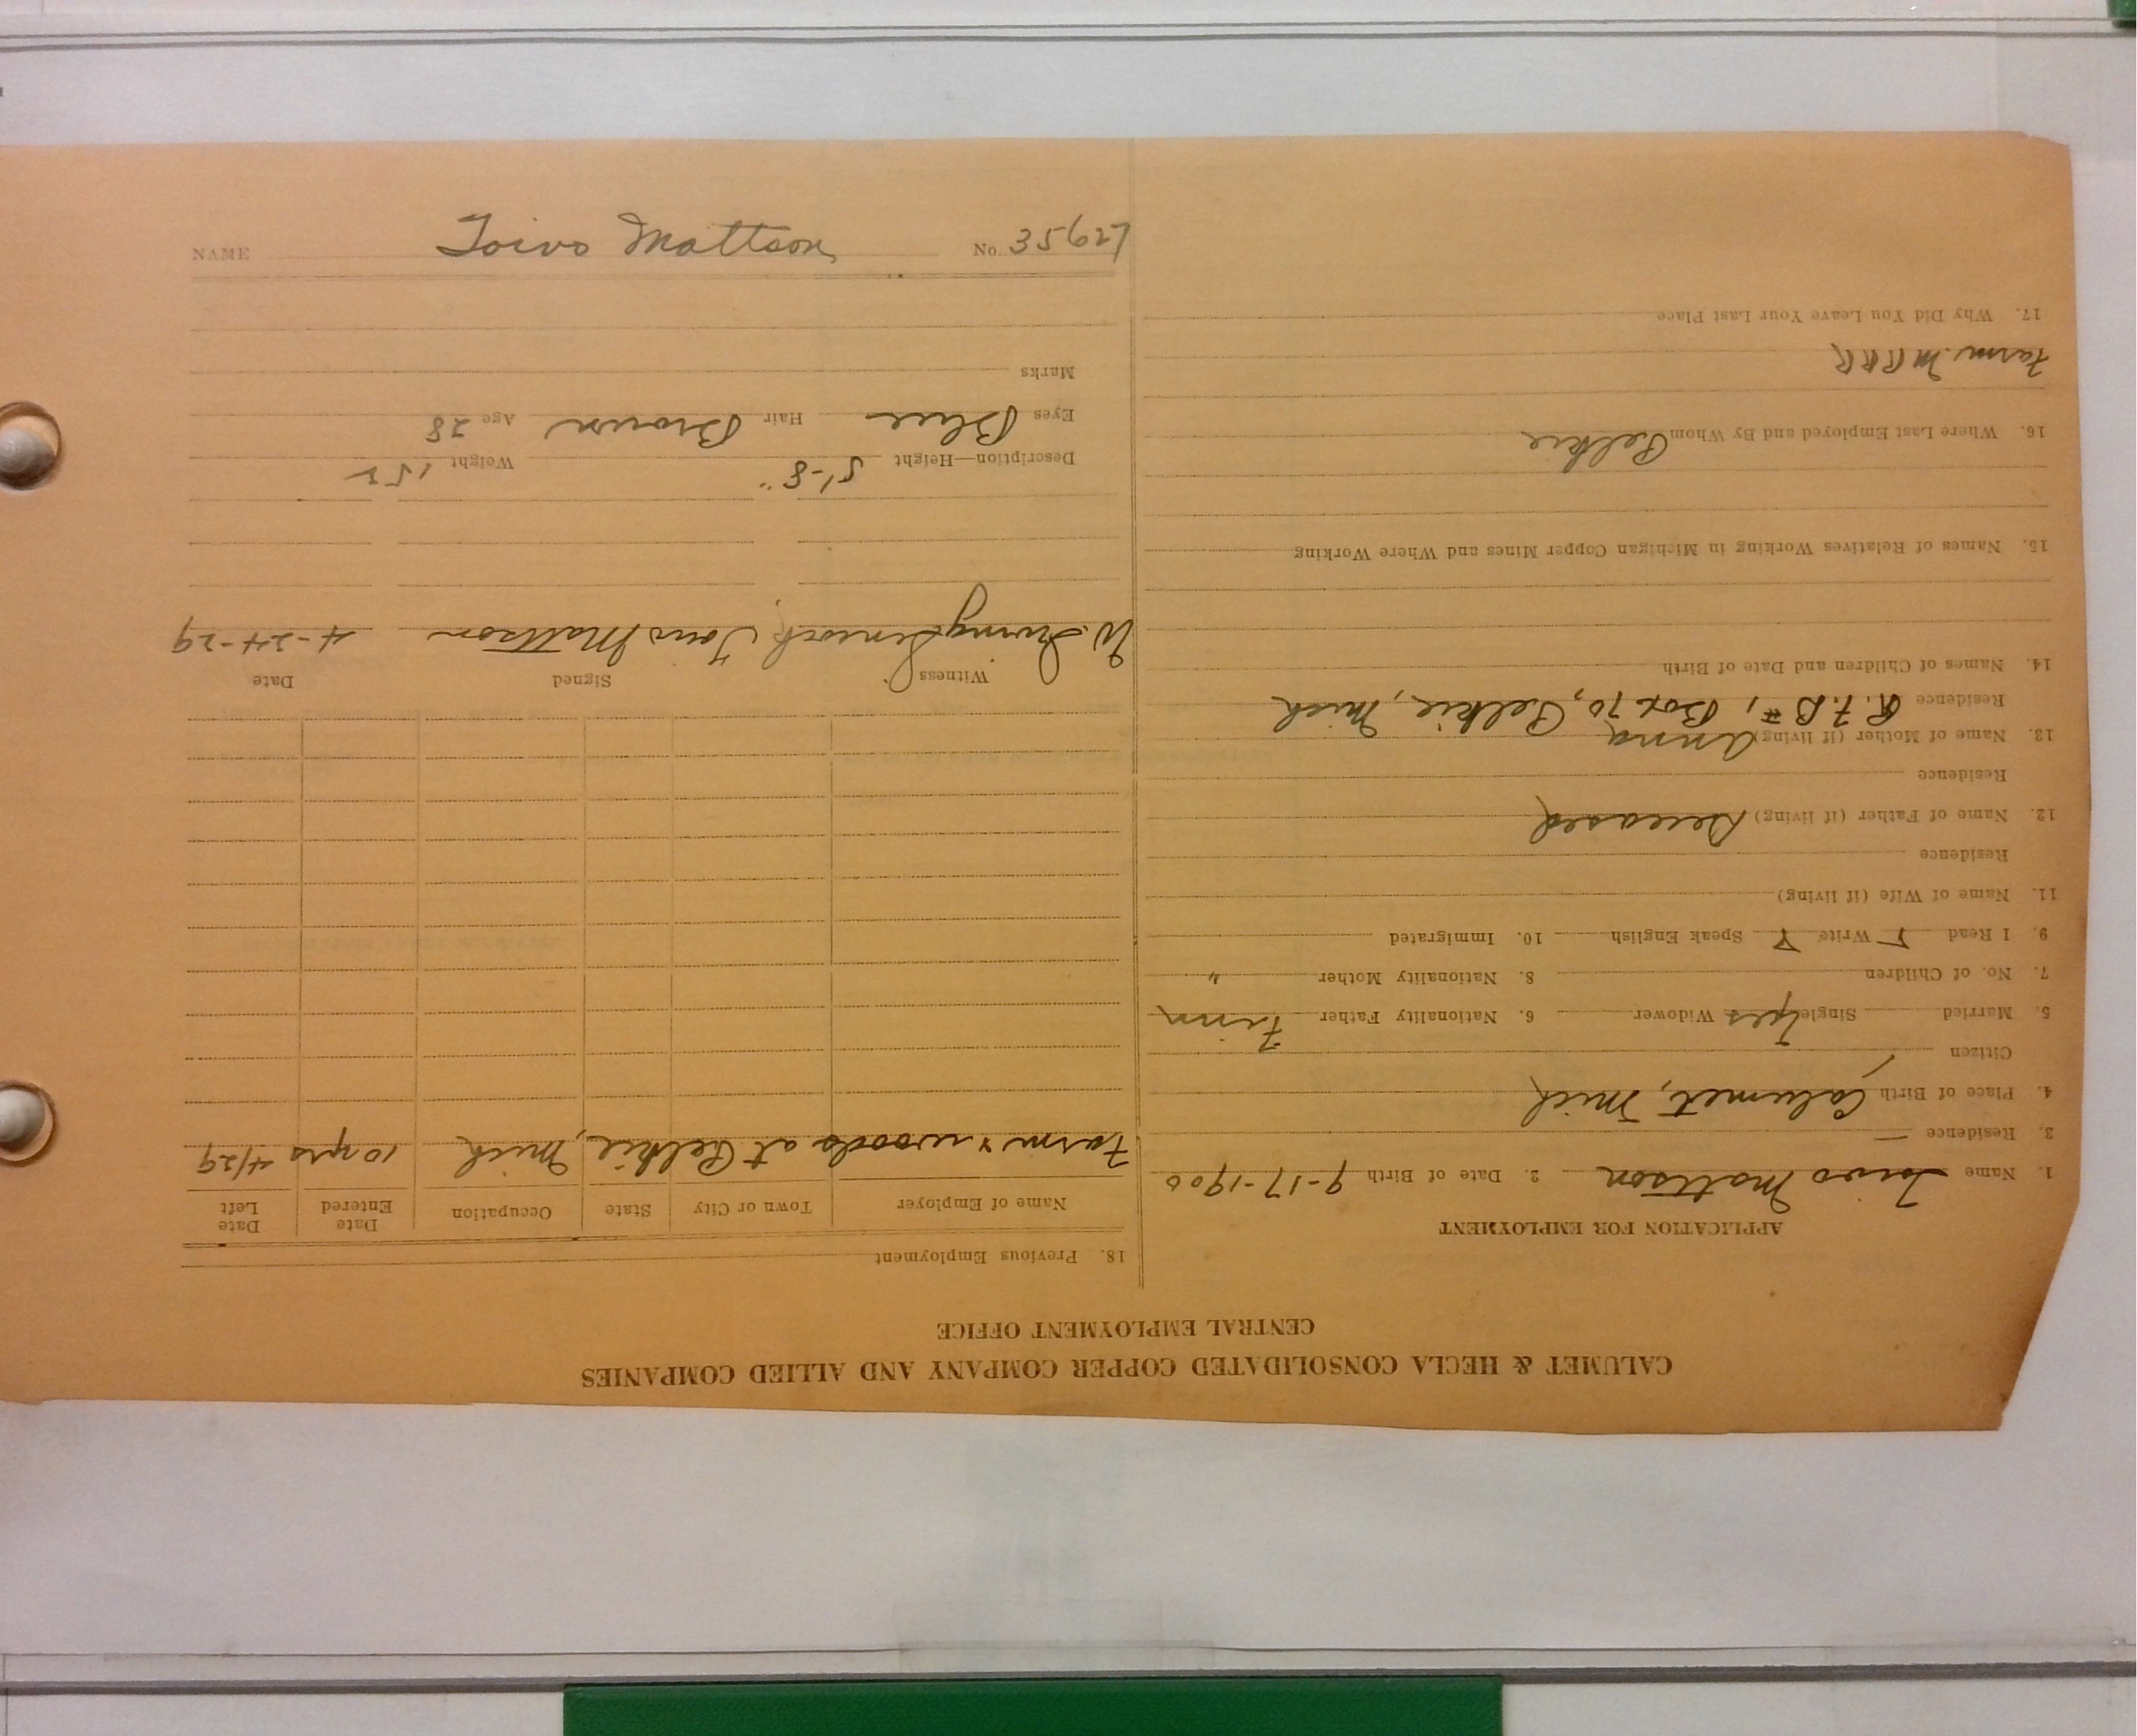 CALUMET & HECLA CONSOLIDATED COPPER COMPANY AND ALLIED COMPANIES
CENTRAL EMPLOYMENT OFFICE
APPLICATION FOR EMPLOYMENT
1. Name Toivo Mattson 2. Date of Birth 9-17-1900
3. Residence —
4. Place of Birth Calumet, Mich
Citizen
5. Married Single yes Widower 6. Nationality Father Finn
7. No. of Children 8. Nationality Mother "
9. I Read Y Write Y Speak English 10. Immigrated
11. Name of Wife (if living)
Residence
12. Name of Father (if living) Deceased
Residence
13. Name of Mother (if living) Anna
Residence R.F.D #1, Box 70, Pelkie, Mich
14. Names of Children and Date of Birth
15. Names of Relatives Working in Michigan Copper Mines and Where Working
16. Where Last Employed and By Whom Pelkie
Farm.
17. Why Did You Leave Your Last Place
18. Previous Employment
Name of Employer Town or City State Occupation Date Entered Date Left
Farm & woods at Pelkie, Mich 10 yrs 4/29
Witness Signed Date
W. Irving Toivo Mattson 4-24-29
Description—Height 5'-8" Weight 152
Eyes Blue Hair Brown Age 28
Marks
NAME Toivo Mattson No. 35627